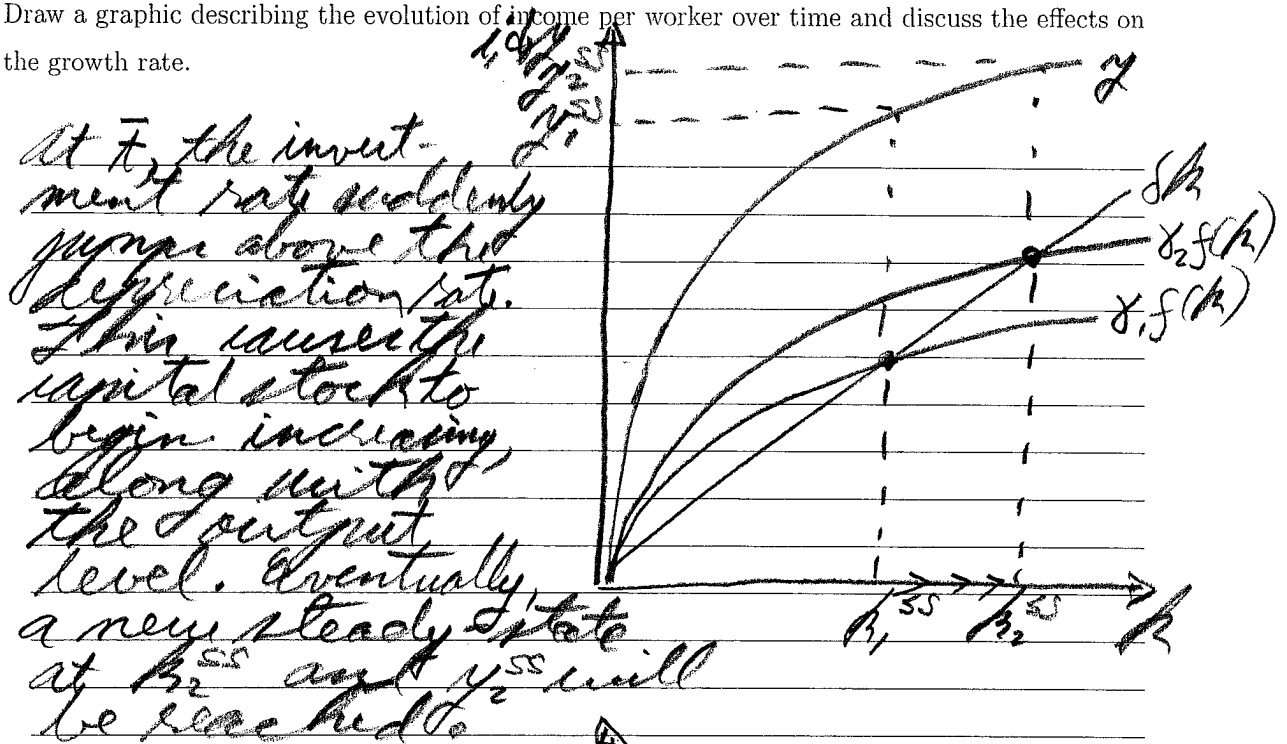 Draw a graphic describing the evolution of income per worker over time and discuss the effects on
the growth rate.
i, d, y
y₂ˢˢ
y₁ˢˢ
y
δk
γ₂f(k)
γ₁f(k)
k₁ˢˢ
k₂ˢˢ
k
At t̄, the invest-
ment rate suddenly
jumps above the
depreciation rate.
This causes the
capital stock to
begin increasing,
along with
the output
level. Eventually,
a new steady-state
at k₂ˢˢ and y₂ˢˢ will
be reached.